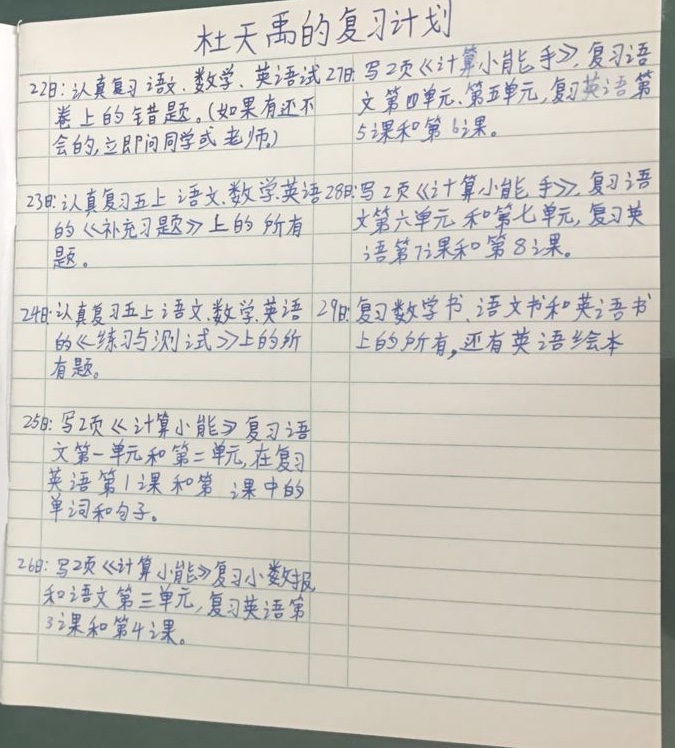 杜天禹的复习计划
22日:认真复习语文、数学、英语试
卷上的错题。(如果有还不
会的,立即问同学或老师。)
23日:认真复习五上语文、数学、英语
的《补充习题》上的所有
题。
24日:认真复习五上语文、数学、英语
的《练习与测试》上的所
有题。
25日:写2页《计算小能》复习语
文第一单元和第二单元,在复习
英语第1课和第 课中的
单词和句子。
26日:写2页《计算小能》复习小数报
和语文第三单元,复习英语第
3课和第4课。
27日:写2页《计算小能手》,复习语
文第四单元、第五单元,复习英语第
5课和第6课。
28日:写2页《计算小能手》,复习语
文第六单元和第七单元,复习英
语第7课和第8课。
29日:复习数学书、语文书和英语书
上的所有,还有英语绘本